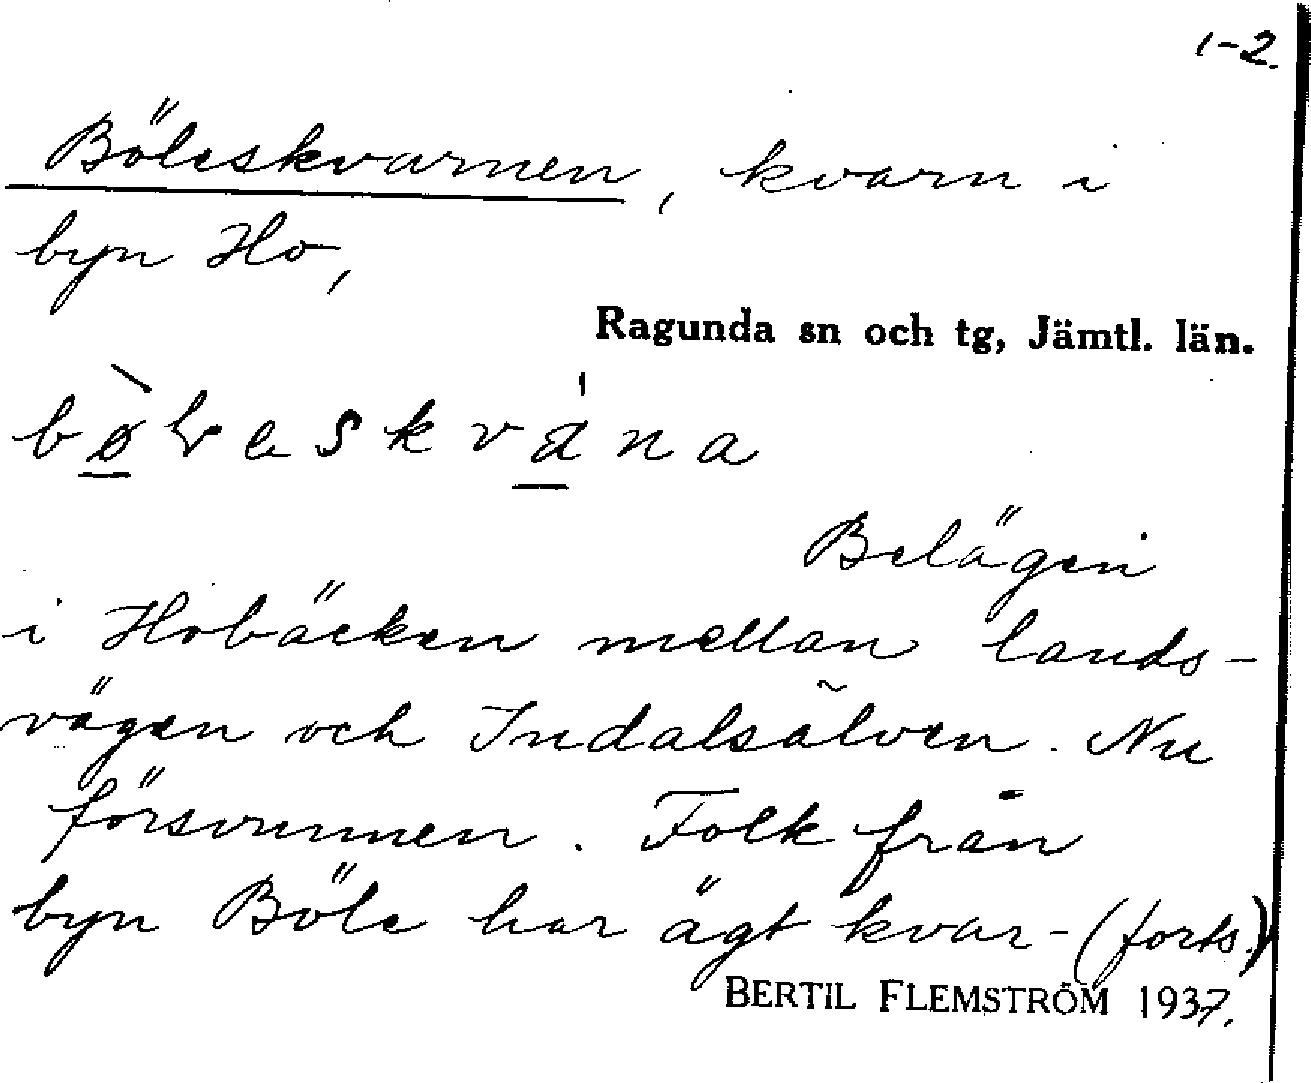 1-2.
Böleskvarnen, kvarn i
byn Ho,
Ragunda sn och tg, Jämtl. län.
Belägen
i Hobäcken mellan lands-
vägen och Indalsälven. Nu
försvunnen. Folk från
byn Böle har ägt kvar- (forts.)
BERTIL FLEMSTRÖM 1937.